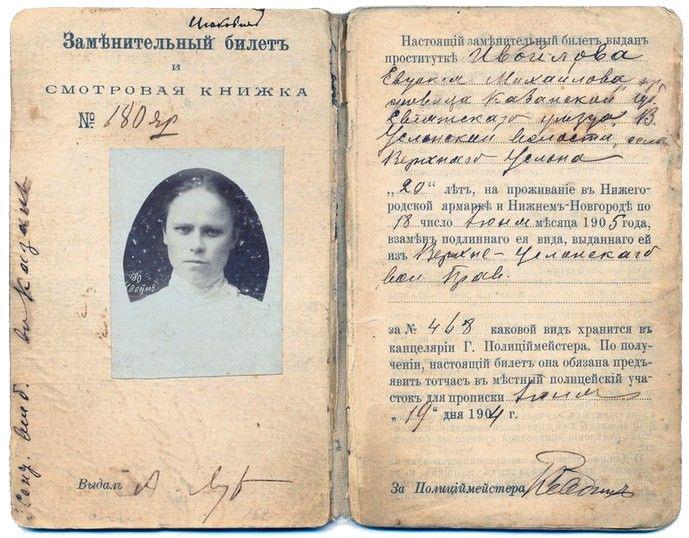 Замѣнительный билетъ
и
СМОТРОВАЯ КНИЖКА
№ 180 яр
180
Выдалъ А
въ Казань
Настоящій замѣнительный билетъ выданъ
проституткѣ Ивойлова
Евдокія Михайлова, кр
Казанской губ.
Свіяжскаго уѣзда, В.
Услонской волости, села
Верхняго Услона
„20" лѣтъ, на проживаніе въ Нижего-
родской ярмаркѣ и Нижнемъ-Новгородѣ по
18 число іюня мѣсяца 1905 года,
взамѣнъ подлиннаго ея вида, выданнаго ей
изъ Верхне-Услонскаго
вол. Прав.
за № 468 каковой видъ хранится въ
канцеляріи Г. Полиціймейстера. По полу-
ченіи, настоящій билетъ она обязана предъ-
явить тотчасъ въ мѣстный полицейскій уча-
стокъ для прописки іюня
„19" дня 1904 г.
За Полиціймейстера